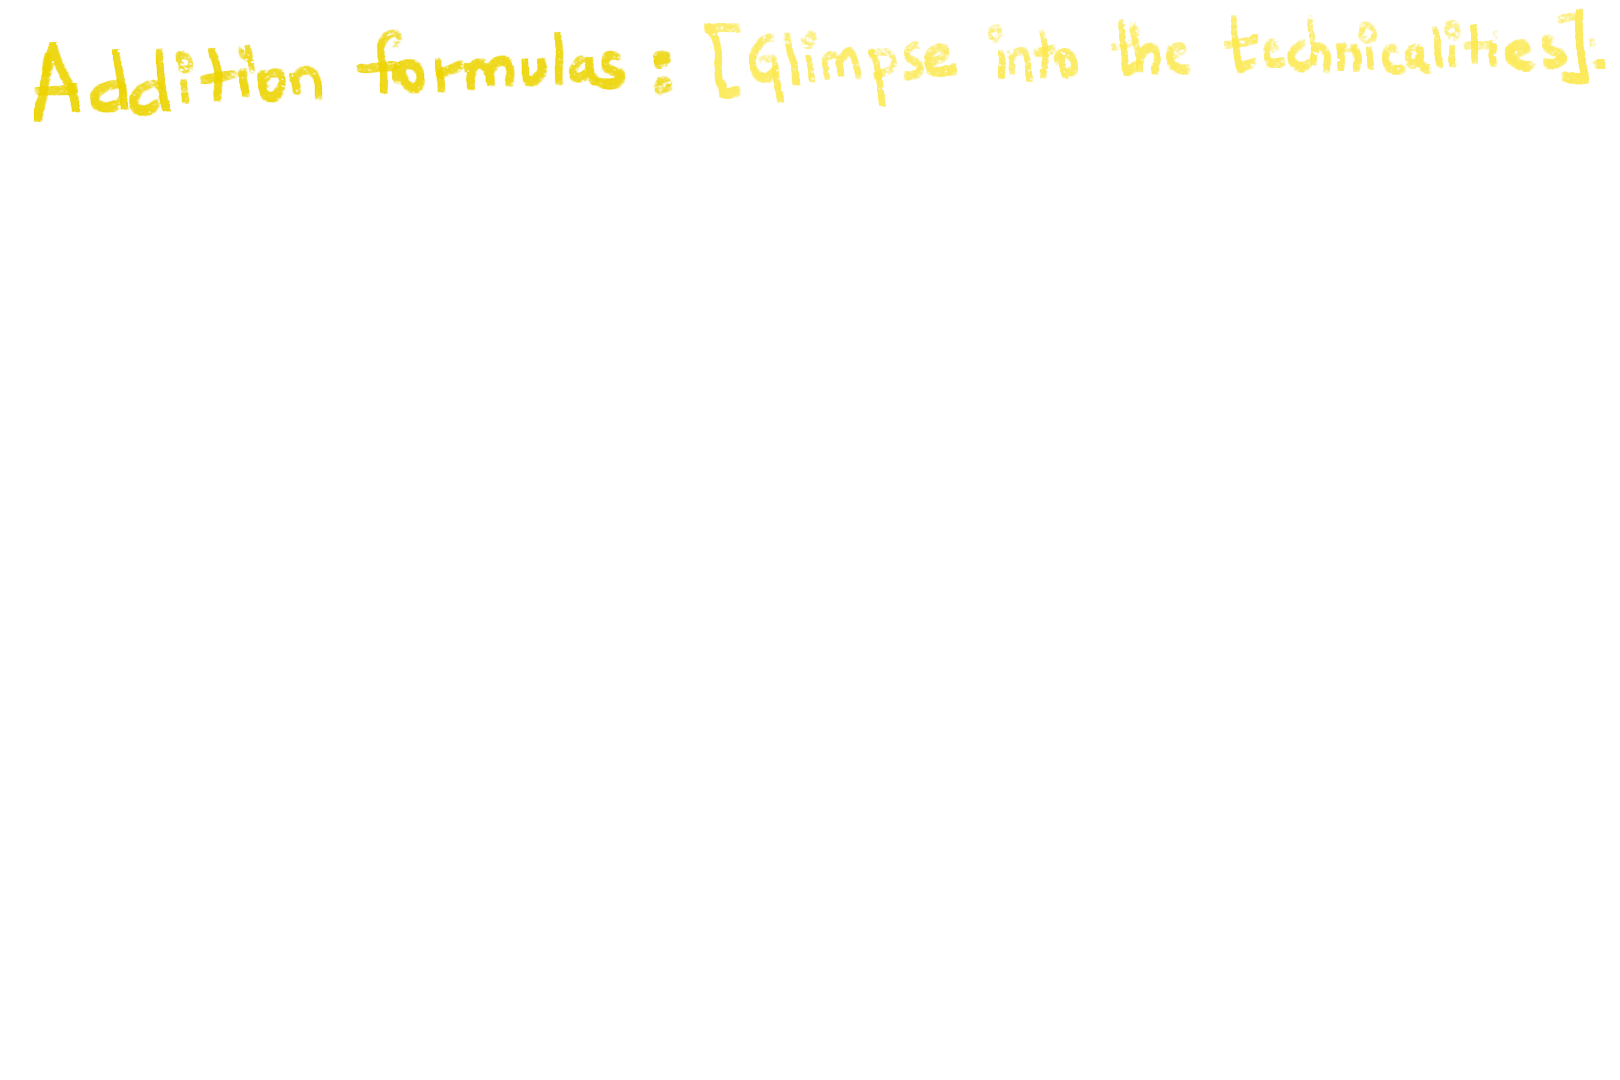 Addition formulas : [Glimpse into the technicalities].